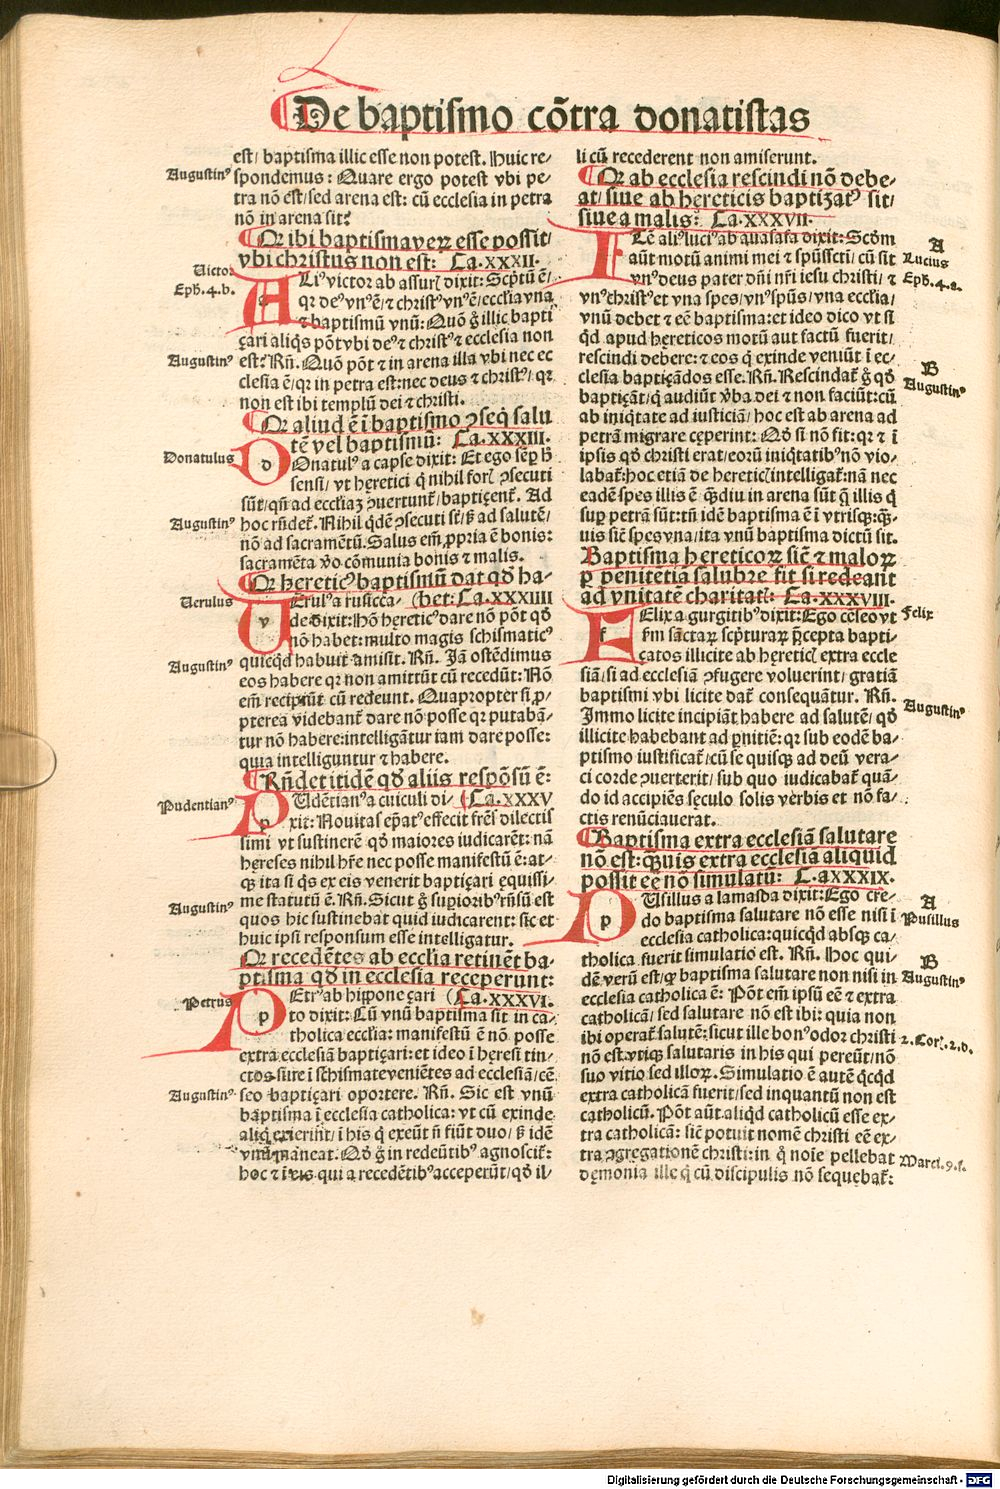 De baptismo cõtra donatistas
est/ baptisma illic esse non potest. Huic re-
Augustinꝰ
spondemus: Quare ergo potest vbi pe-
tra nõ est/ sed arena est: cũ ecclesia in petra
nõ in arena sit?
Qꝛ ibi baptisma veꝝ esse possit/
vbi christus non est: Ca.XXXII.
Victoꝛ
Eph.4.b.
ALiꝰ victor ab assurꝭ dixit: Scptũ ẽ/
qꝛ deꝰ vnꝰ ẽ/ ⁊ christꝰ vnꝰ ẽ/ ecclia vna
⁊ baptismũ vnũ: Quõ g̊ illic bapti
çari aliq̃s põt vbi deꝰ ⁊ christꝰ ⁊ ecclesia non
Augustinꝰ
est? Rñ. Quõ põt ⁊ in arena illa vbi nec ec
clesia ẽ/ qꝛ in petra est: nec deus ⁊ christꝰ/ qꝛ
non est ibi templũ dei ⁊ christi.
Qꝛ aliud ẽ ĩ baptismo ꝯseq̃ salu
tẽ vel baptismũ: Ca.XXXIII.
Donatulus
DOnatulꝰ a capse dixit: Et ego sẽp h̃
sensi/ vt hęretici q̃ nihil forꝭ ꝯsecuti
sũt/ qñ ad eccliaꝫ ꝯuertunt̃/ baptiçent̃. Ad
Augustinꝰ
hoc rñdet̃. Nihil q̃dẽ ꝯsecuti st̃/ ꝭ ad salutẽ/
nõ ad sacramẽtũ. Salus em̃ ꝓpria ẽ bonis:
sacramẽta ṽo cõmunia bonis ⁊ malis.
Qꝛ hereticꝰ baptismũ dat qð ha-
Verulus
VErulꝰ a rusicca- (bet: Ca.XXXIIII
de dixit: Hõ hęreticꝰ dare nõ põt qð
nõ habet: multo magis schismaticꝰ
Augustinꝰ
quicq̃d habuit amisit. Rñ. Jã ostẽdimus
eos habere qꝛ non amittũt cũ recedũt: Nõ
em̃ recipiũt cũ redeunt. Quapropter si ꝓ-
pterea videbant̃ dare nõ posse qꝛ putabã-
tur nõ habere: intelligãtur iam dare posse:
quia intelliguntur ⁊ habere.
Rñdet itidẽ qð aliis respõsũ ẽ:
Pudentianꝰ
PUdẽtianꝰ a cuiculi di- (Ca.XXXV
xit: Nouitas ep̃atꝰ effecit fr̃eſ dilectis
simi vt sustinerẽ qð maiores iudicarẽt: nã
hęreses nihil hr̃e nec posse manifestũ ẽ: at-
q̃ ita si q̃s ex eis venerit baptiçari ęquissi-
Augustinꝰ
me statutũ ẽ. Rñ. Sicut g̊ supioribꝰ rñsũ est
quos hic sustinebat quid iudicarent: sic et
huic ipsi responsum esse intelligatur.
Qꝛ recedẽtes ab ecclia retinẽt ba-
ptisma qð in ecclesia receperunt:
Petrus
PEtrꝰ ab hippone çari (Ca.XXXVI.
to dixit: Cũ vnũ baptisma sit in ca-
tholica ecclia: manifestũ ẽ nõ posse
extra ecclesiã baptiçari: et ideo ĩ hęresi tin-
ctos siue ĩ schismate veniẽtes ad ecclesiã/ cẽ-
Augustinꝰ
seo baptiçari oportere. Rñ. Sic est vnũ
baptisma ĩ ecclesia catholica: vt cũ exinde
aliq̃ exierint/ ĩ his q̃ exeũt ñ fiũt duo/ ꝭ idẽ
vnũ maneat. Qð g̊ in redeũtibꝰ agnoscit̃:
hoc ⁊ ĩ eis qui a recedẽtibꝰ acceperũt/ qð il-
li cũ recederent non amiserunt.
Qꝛ ab ecclesia rescindi nõ debe-
at/ siue ab hereticis baptiȥatꝰ sit/
siue a malis: Ca.XXXVII.
A
Lucius
Eph.4.a.
ITẽ aliꝰ luciꝰ ab auasafa dixit: Scðm
aũt motũ animi mei ⁊ spũssctĩ/ cũ sit
vnꝰ deus pater dñi nr̃i iesu christi/ ⁊
vnꝰ christꝰ et vna spes/ vnꝰ spũs/ vna ecclia/
vnũ debet ⁊ eẽ baptisma: et ideo dico vt si
q̃d apud hęreticos motũ aut factũ fuerit/
rescindi debere: ⁊ eos q̃ exinde veniũt ĩ ec-
B
Augustinꝰ
clesia baptiçãdos esse. Rñ. Rescindat̃ g̊ qð
baptiçãt/ q̃ audiũt ṽba dei ⁊ non faciũt: cũ
ab iniq̃tate ad iusticiã/ hoc est ab arena ad
petrã migrare cęperint: Qð si nõ fit: qꝛ ⁊ ĩ
ipsis qð christi erat/ eorũ iniq̃tatibꝰ nõ vio-
labat̃: hoc etiã de hereticꝭ intelligat̃: nã nec
eadẽ spes illis ẽ q̃ȝdiu in arena sũt q̃ illis q̃
sup petrã sũt: tñ idẽ baptisma ẽ ĩ vtrisq̃: q̃ȝ-
uis sic̃ spes vna/ ita vnũ baptisma dictũ sit.
Baptisma hereticoꝝ sic̃ ⁊ maloꝝ
ꝑ penitẽtiã salubre fit si redeãt
ad vnitatẽ charitatꝭ: Ca.XXXVIII.
Felix
FElix a gurgitibꝰ dixit: Ego cẽseo vt
fm sãctaꝝ scpturaꝝ p̃cepta bapti-
catos illicite ab hęreticꝭ extra eccle
siã/ si ad ecclesiã ꝯfugere voluerint/ gratiã
baptismi vbi licite dat̃ consequãtur. Rñ.
Augustinꝰ
Jmmo licite incipiãt habere ad salutẽ/ qð
illicite habebant ad pnitiẽ: qꝛ sub eodẽ ba-
ptismo iustificat̃/ cũ se quisq̃ ad deũ vera-
ci corde ꝯuerterit/ sub quo iudicabat̃ quã-
do id accipiẽs sęculo solis verbis et nõ fa-
ctis renũciauerat.
Baptisma extra ecclesiã salutare
nõ est: q̃ȝuis extra ecclesiã aliquid
possit eẽ nõ simulatũ: C.aXXXIX.
A
Pusillus
PUsillus a lamasba dixit: Ego cre-
do baptisma salutare nõ esse nisi ĩ
ecclesia catholica: quicq̃d absq̃ ca-
B
Augustinꝰ
tholica fuerit simulatio est. Rñ. Hoc qui-
dẽ verũ est/ q̃ baptisma salutare non nisi in
ecclesia catholica ẽ: Põt em̃ ipsũ eẽ ⁊ extra
catholicã/ sed salutare nõ est ibi: quia non
ibi operat̃ salutẽ: sicut ille bonꝰ odor christi
2.Corꝭ.2.d.
nõ est vtiq̃ salutaris in his qui pereũt/ nõ
suo vitio sed illoꝝ. Simulatio ẽ autẽ q̃cq̃d
extra catholicã fuerit/ sed inquantũ non est
catholicũ. Põt aũt aliq̃d catholicũ esse ex-
tra catholicã: sic̃ potuit nomẽ christi eẽ ex-
Marci.9.f.
tra agregationẽ christi: in q̃ noĩe pellebat
dęmonia ille q̃ cũ discipulis nõ sequebat̃:
Digitalisierung gefördert durch die Deutsche Forschungsgemeinschaft - DFG